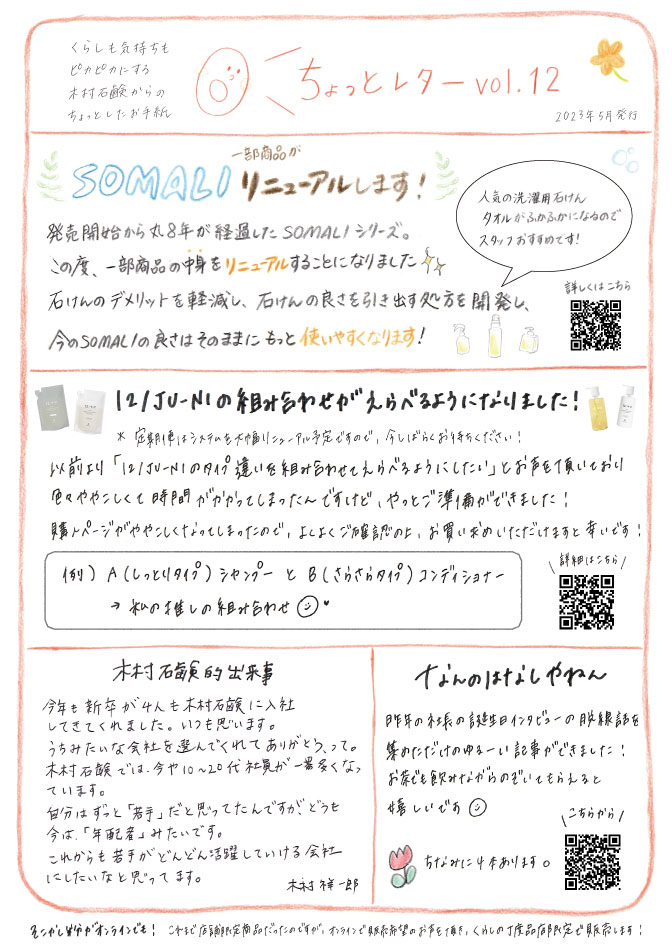 くらしも気持ちも
ピカピカにする
木村石鹸からの
ちょっとしたお手紙
ちょっとレターvol.12
2023年5月発行
一部商品が
SOMALI リニューアルします!
発売開始から丸8年が経過したSOMALIシリーズ。
この度、一部商品の中身をリニューアルすることになりました
石けんのデメリットを軽減し、石けんの良さを引き出す処方を開発し、
今のSOMALIの良さはそのままにもっと使いやすくなります!
人気の洗濯用石けん
タオルがふかふかになるので
スタッフおすすめです!
詳しくはこちら
12/JU-NIの組み合わせがえらべるようになりました!
* 定期便はシステムを大幅リニューアル予定ですので、今しばらくお待ちください!
以前より「12/JU-NIのタイプ違いを組み合わせてえらべるようにしたい」とお声を頂いており
色々ややこしくて時間がかかってしまったんですけど、やっとご準備ができました!
購入ページがややこしくなってしまったので、よくよくご確認の上、お買い求めいただけますと幸いです!
例) A(しっとりタイプ)シャンプー と B(さらさらタイプ)コンディショナー
→ 私の推しの組み合わせ
\ 詳細はこちら /
木村石鹸的出来事
今年も新卒が4人も木村石鹸に入社
してきてくれました。いつも思います。
うちみたいな会社を選んでくれてありがとう、って。
木村石鹸では、今や10~20代社員が一番多くなっ
ています。
自分はずっと「若手」だと思ってたんですが、どうも
今は、「年配者」みたいです。
これからも若手がどんどん活躍していける会社
にしたいなと思ってます。
木村祥一郎
なんのはなしやねん
昨年の社長の誕生日インタビューの脱線話を
集めただけのゆるーい記事ができました!
お茶でも飲みながらのぞいてもらえると
嬉しいです
\ こちらから /
ちなみに4本あります。
これまで店舗限定商品だったのですが、オンラインで販売希望のお声を頂き、くらしの丁度品店限定で販売します!